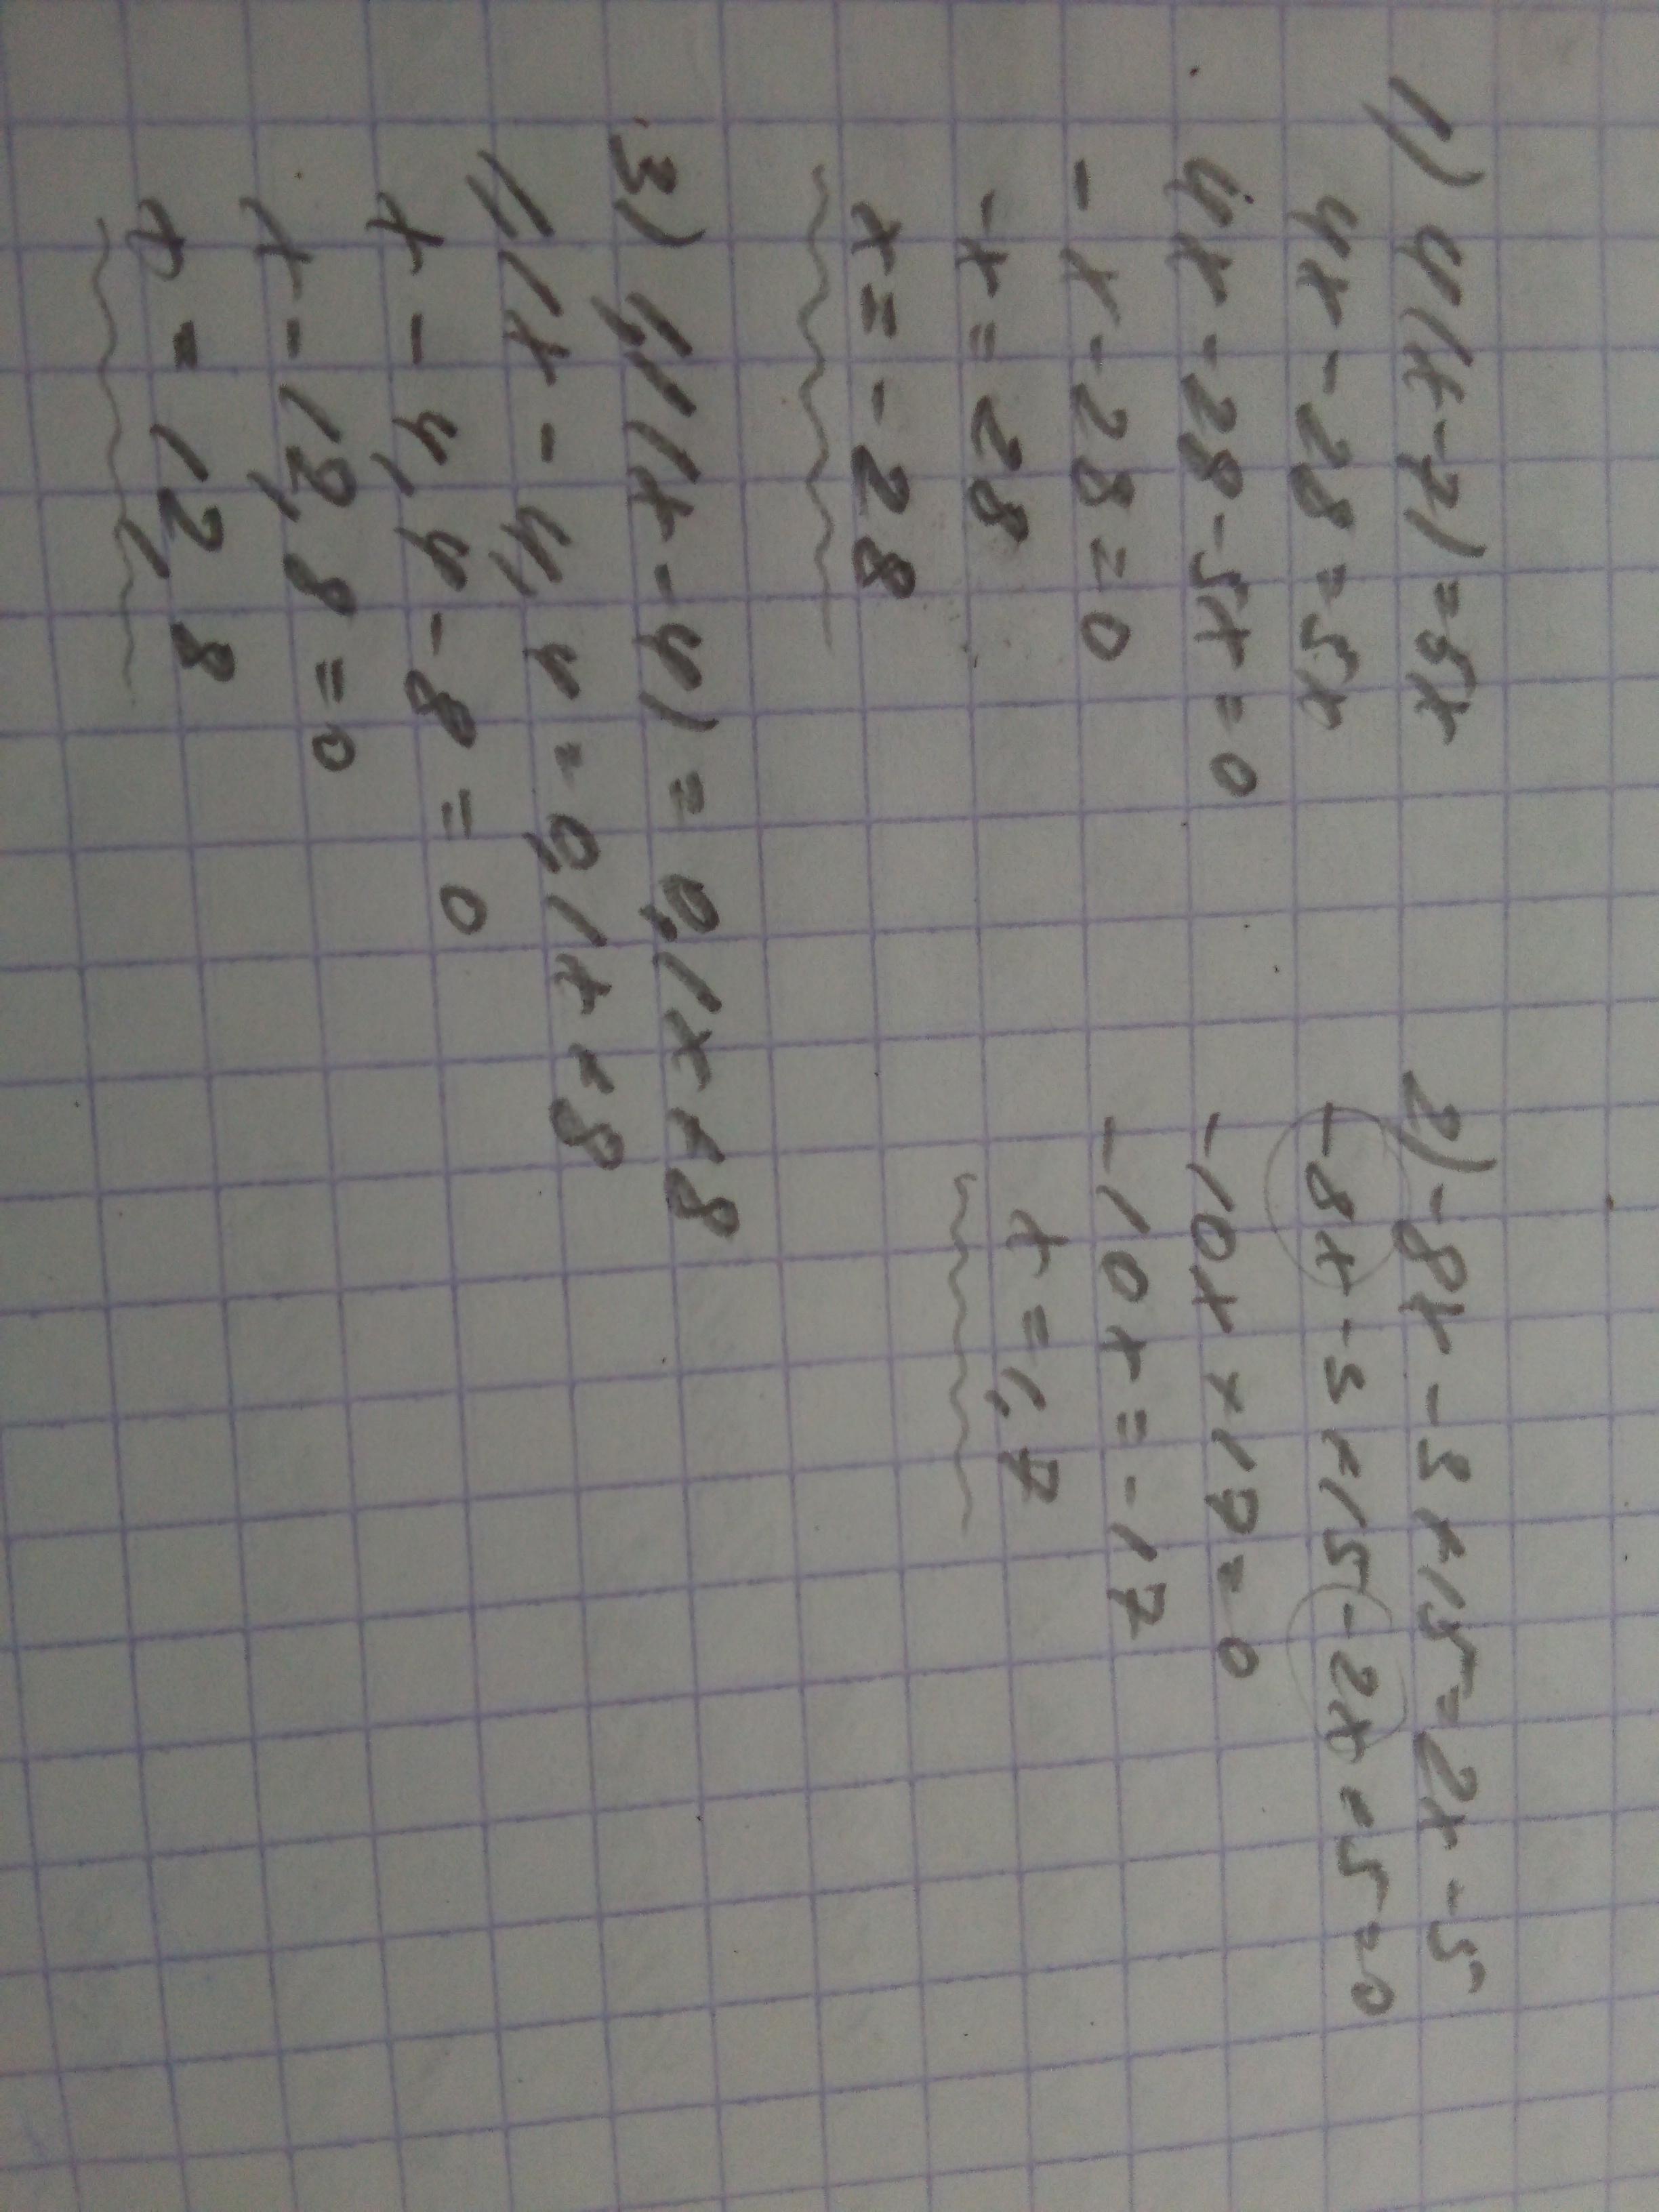 1) 4(x-7)=5x
4x-28=5x
4x-28-5x=0
-x-28=0
-x=28
x=-28
2) -8x-3+15=2x-5
-8x-3+15-2x+5=0
-10x+17=0
-10x=-17
x=1,7
3) 1,1(x-4)=0,1x+8
1,1x-4,4=0,1x+8
x-4,4-8=0
x-12,8=0
x=12,8